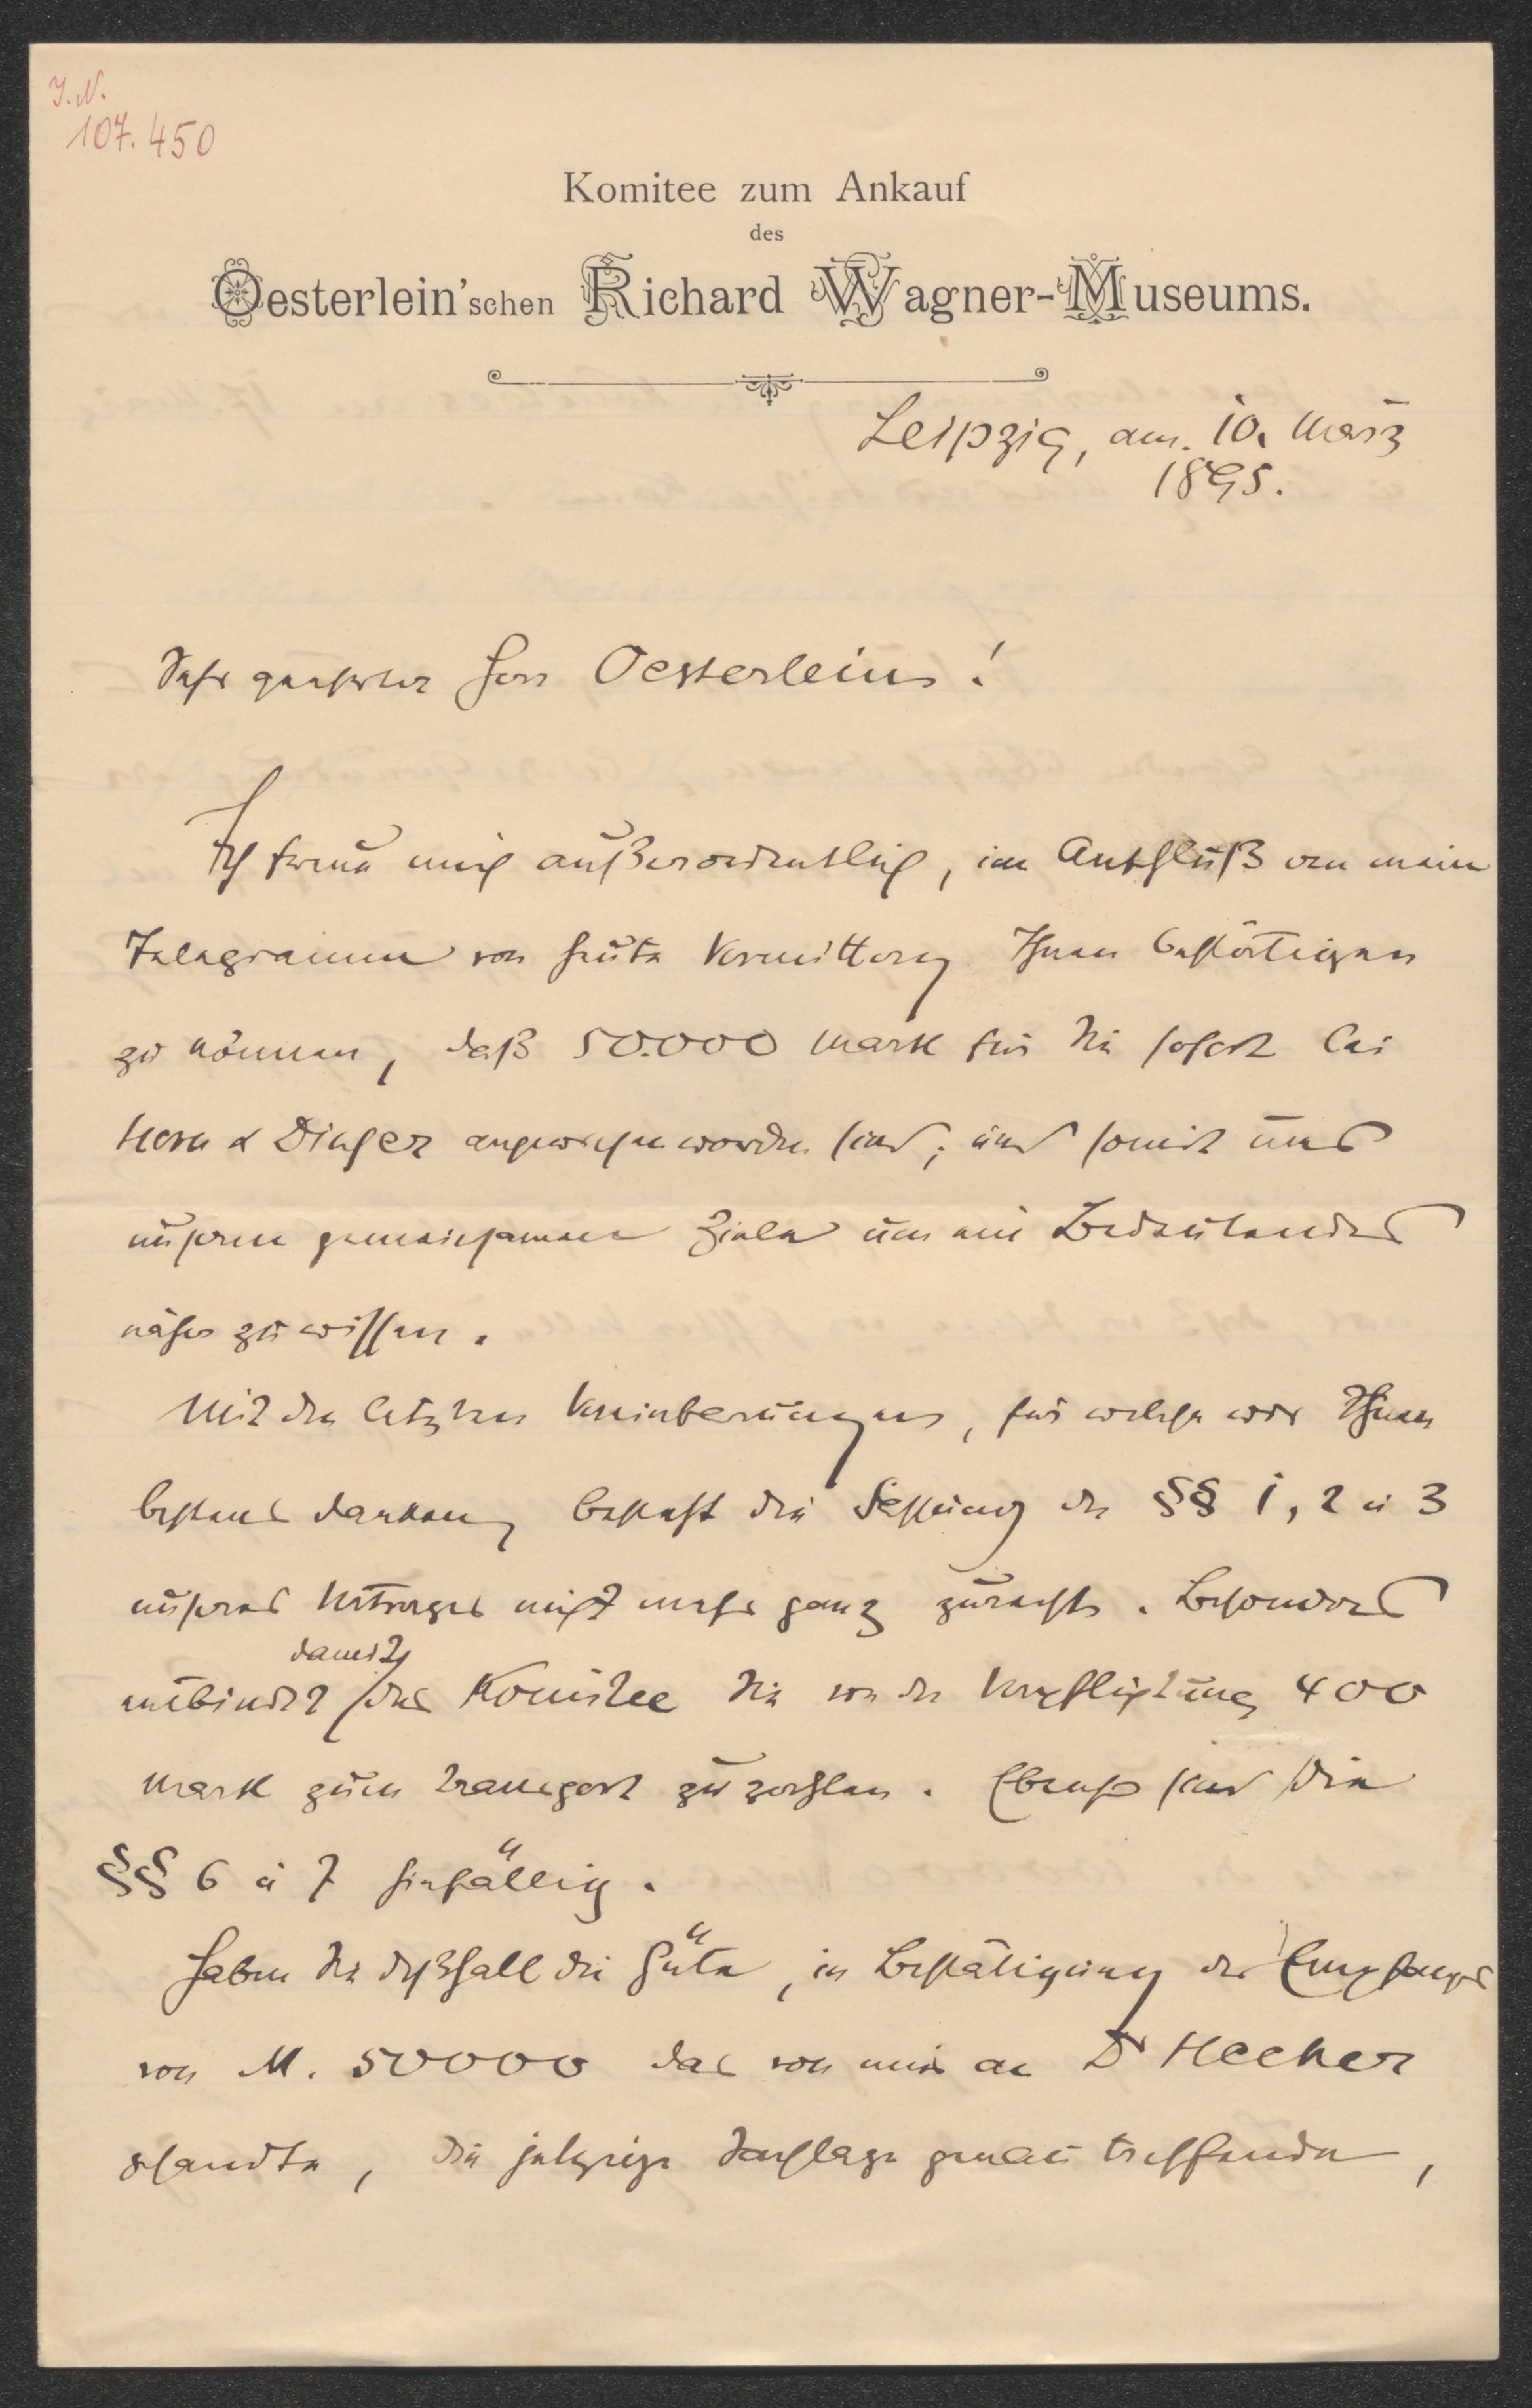 I.N.
107.450
Komitee zum Ankauf
des
Oesterlein'schen Richard Wagner-Museums.
Leipzig, am 10. März
1895.
Sehr geehrter Herr Oesterlein!
Ich freue mich außerordentlich, im Anschluß an mein
Telegramm von heute Vormittag Ihnen bestätigen
zu können, daß 50.000 Mark für Sie sofort bei
Horn & Dinger angewiesen worden sind; und somit uns
unserem gemeinsamen Ziele um ein Bedeutendes
näher zu wissen.
Mit den letzten Vereinbarungen, für welche wir Ihnen
bestens danken, besteht die Fassung der §§ 1, 2 u 3
unseres Vertrages nicht mehr ganz zurecht. Besonders
damit
entbindet das Komitee Sie von der Verpflichtung 400
Mark zum Transport zu zahlen. Ebenso sind die
§§ 6 u 7 hinfällig.
Haben Sie deßhalb die Güte, in Bestätigung des Empfangs
von M. 50000 das von mir an Dr Hecker
gesandte, die jetzige Sachlage genau treffende,